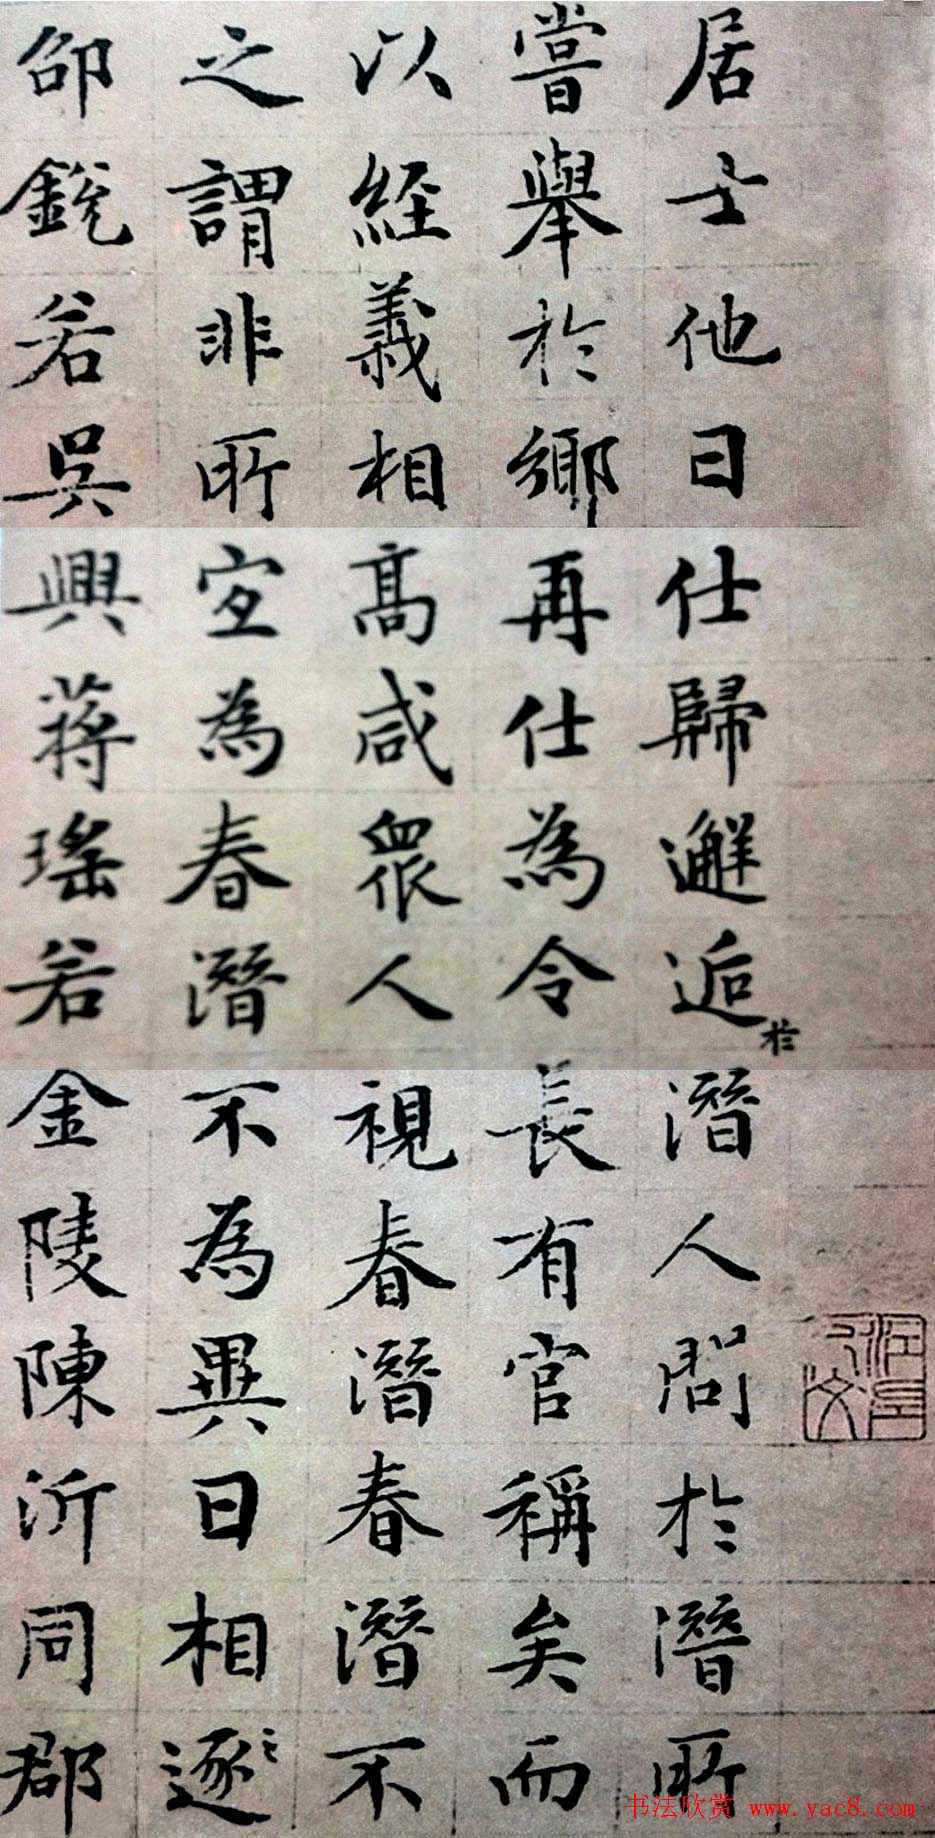 居士他日仕歸邂逅於潛人問於潛所
嘗舉於鄉再仕為令長有官稱矣而
以經義相高咸眾人視春潛春潛不
之謂非所宜為春潛不為異日相逐之
邵銳若吳興蔣瑤若金陵陳沂同郡
书法欣赏 www.yac8.com